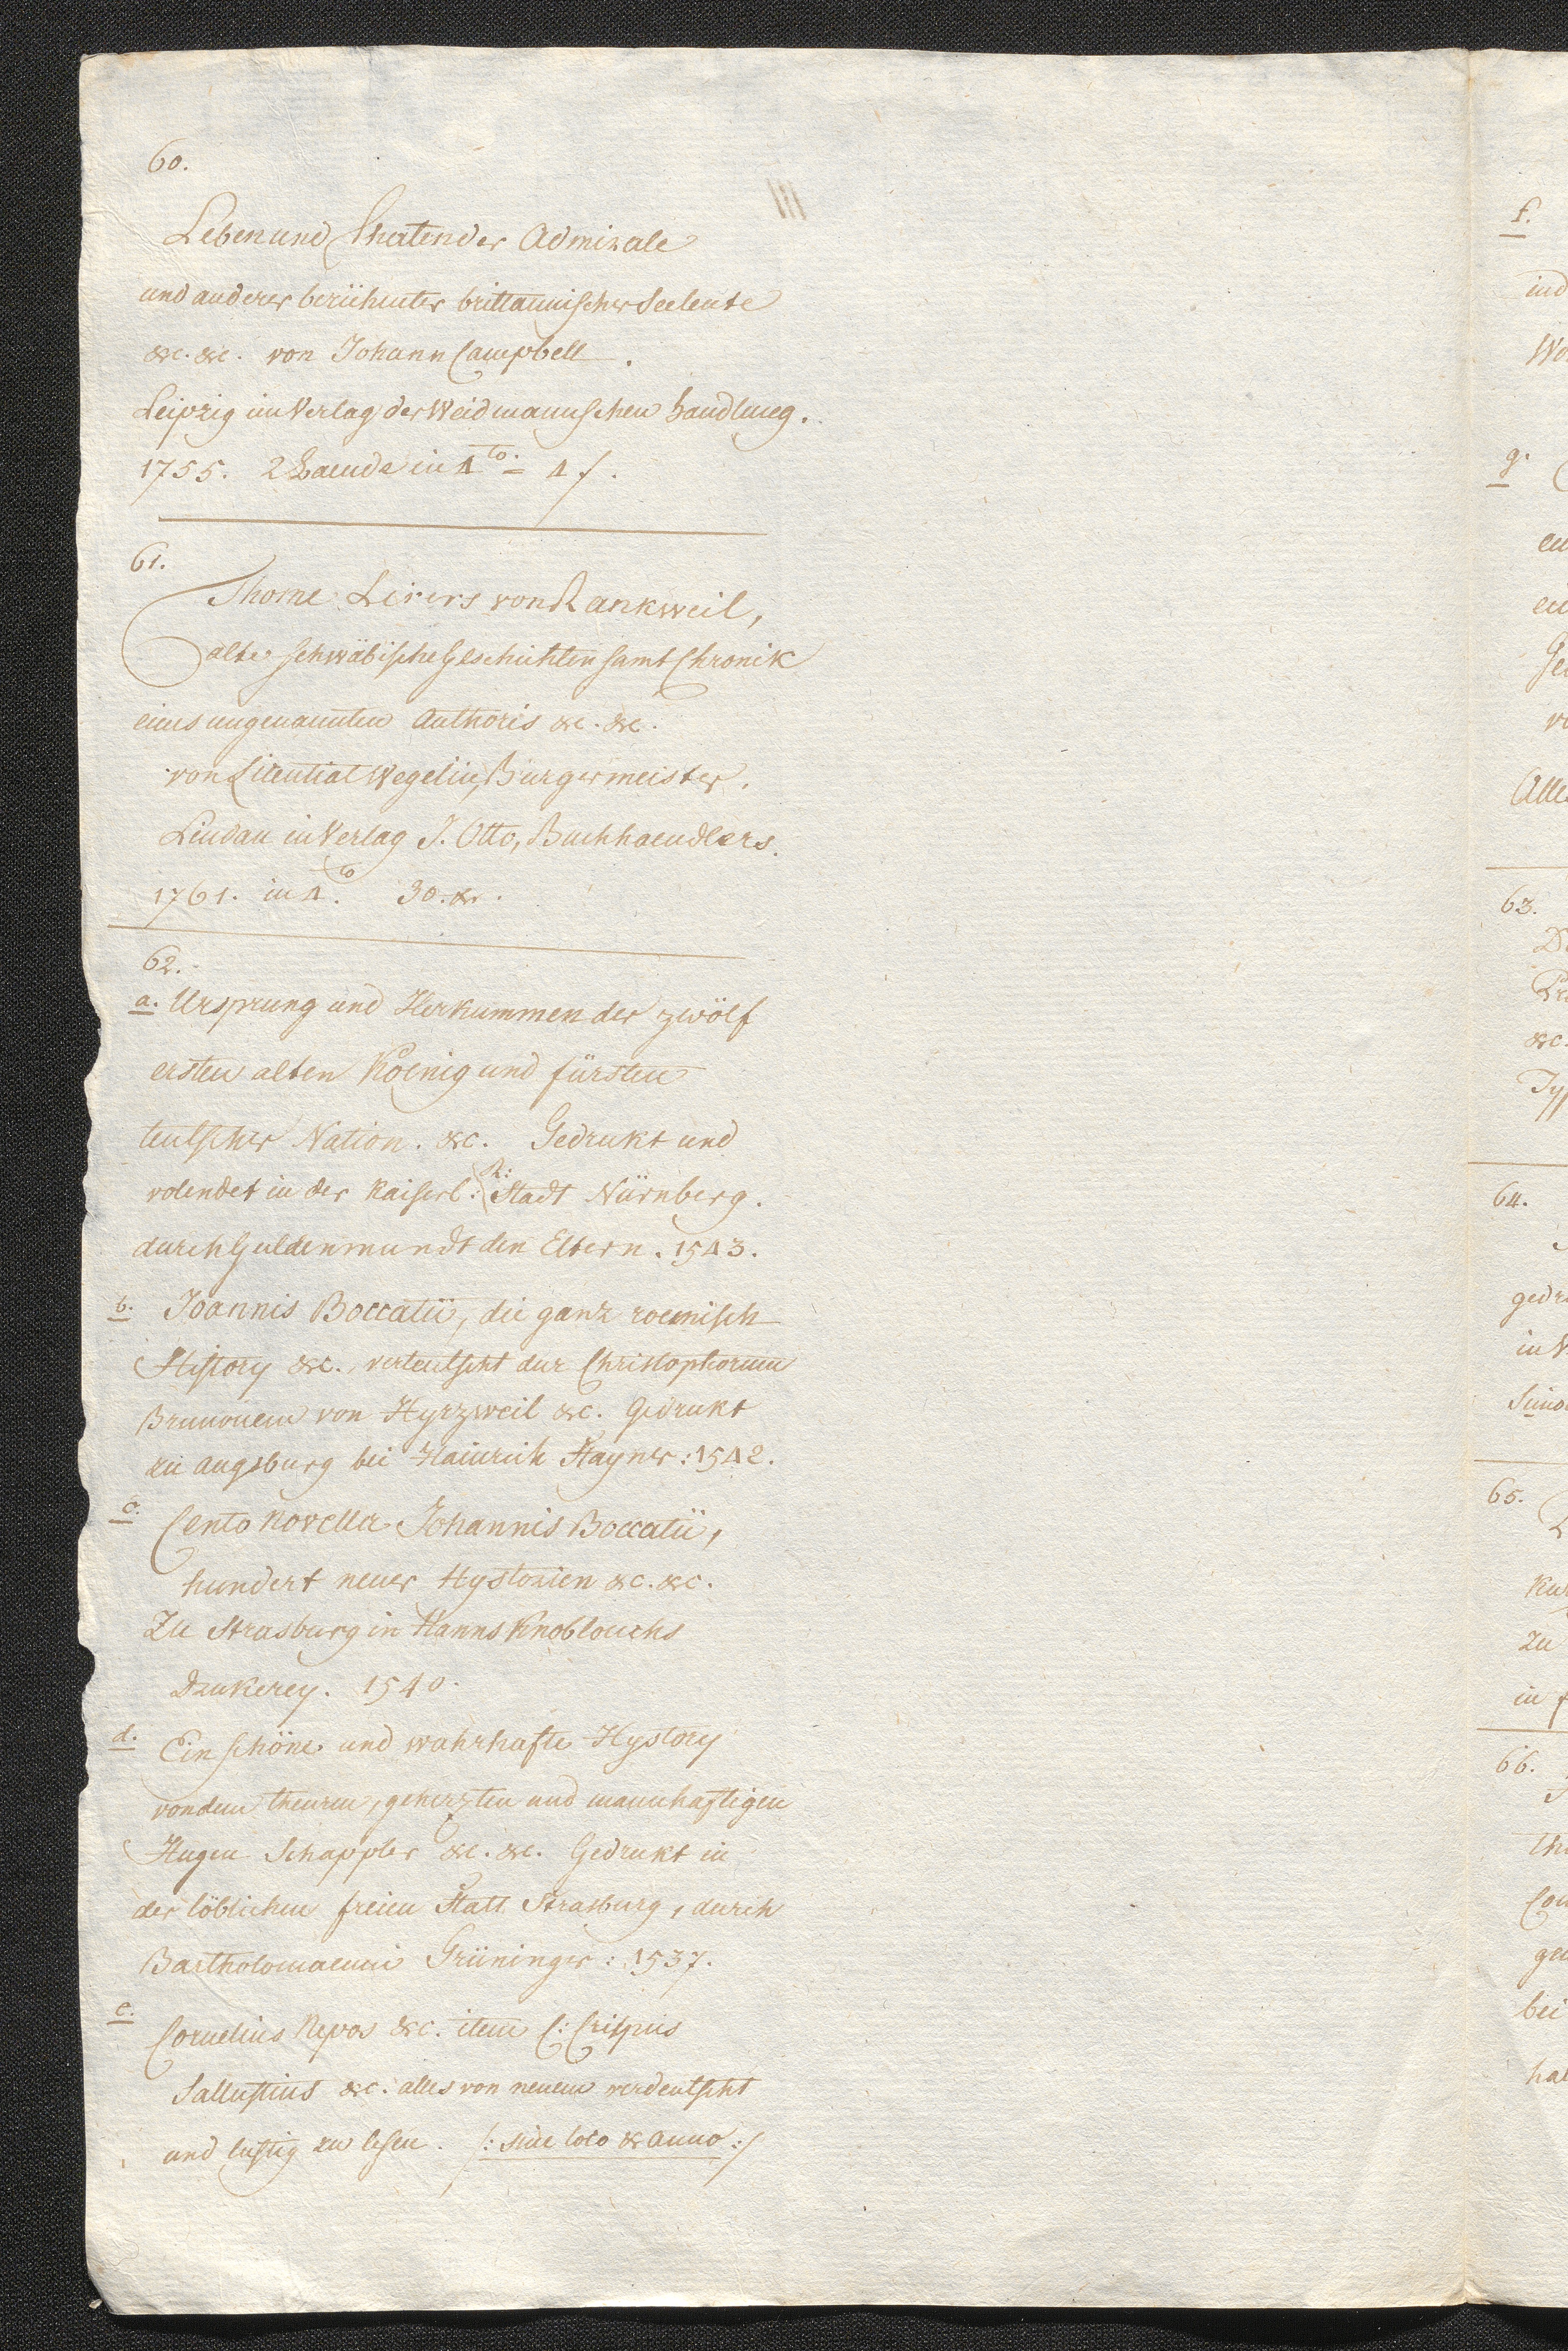 60.
Leben und Thaten der Admirale
und anderer berühmter brittannischer Seeleute
&c. &c. von Johann Campbell.
Leipzig im Verlag der Weidmannschen handlung.
1755. 2 Baende in 4to. = 4 f.
61.
Thome Lirers von Rankweil,
alte schwäbische Geschichten samt Chronik
eines ungenannten Authoris &c. &c.
von Licentiat Wegelin, Bürgermeister.
Lindau in Verlag J. Otto, Buchhaendlers.
1761. in 4to. 30. xr.
62.
a. Ursprung und Herkummen der zwölf
ersten alten Koenig und fürsten
teutscher Nation. &c. Gedrukt und
volendet in der Kaiserl: R: Stadt Nürnberg.
durch Guldenmundt den Eltern. 1543.
b. Joannis Boccatii, die ganz roemisch
History &c. verteutscht dur Christophorum
Brunonem von Hyrzweil &c. Gedrukt
zu Augsburg bei Hainrich Stayner: 1542.
c. Cento Novella Johannis Boccatii,
hundert neuer Hystorien &c. &c.
Zu Strasburg in Hanns Knoblouchs
Drukerey. 1540.
d. Ein schöne und wahrhafte Hystory
von dem theuren, geherzten und mannhaftigen
Hugen Schappler &c. &c. Gedrukt in
der löblichen freien Statt Strasburg, durch
Bartholomaeum Grüninger: 1537.
e. Cornelius Nepos &c. item C: Crispus
Sallustius &c. alles von neuem verdeutscht
und lustig zu lesen. /: sine loco & anno :/
f.
ind
g.
63.
&c.
64.
gedr
in V
65.
zu
in f
66.
bei